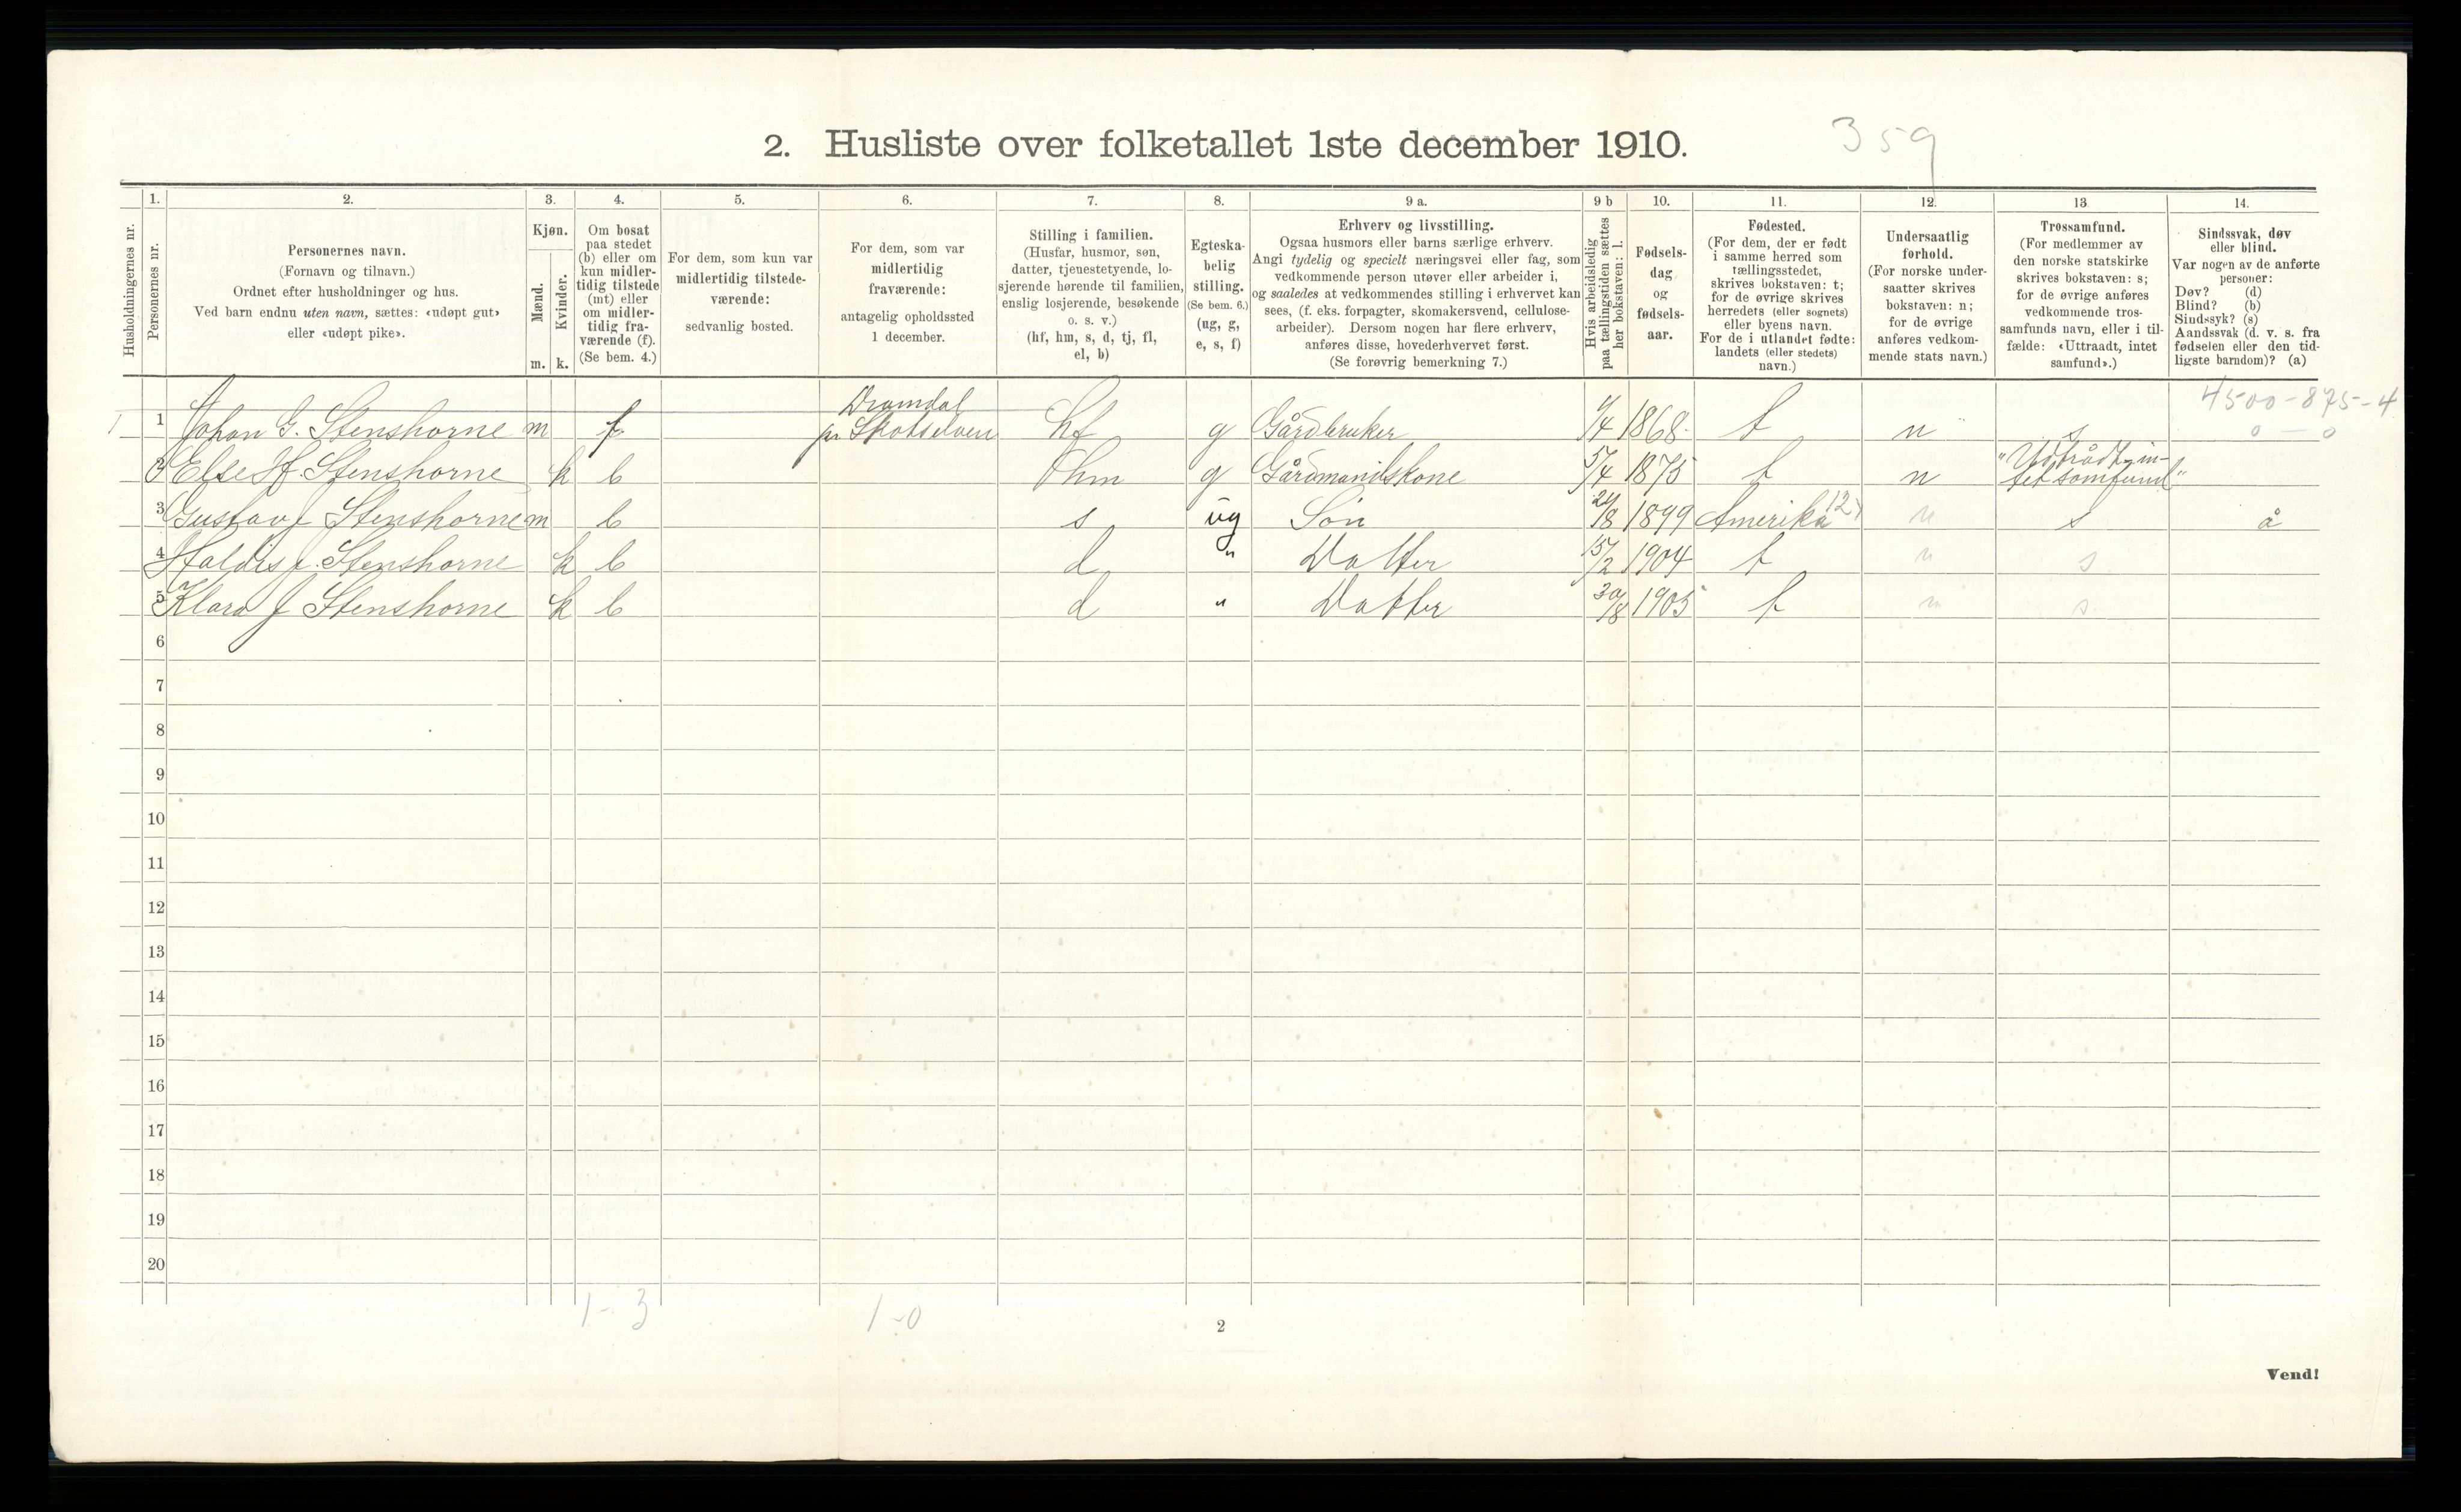 2. Husliste over folketallet 1ste december 1910.
359
Husholdningernes nr.
1. Personernes nr.
2. Personernes navn.
(Fornavn og tilnavn.)
Ordnet efter husholdninger og hus.
Ved barn endnu uten navn, sættes: «udøpt gut»
eller «udøpt pike».
3. Kjøn.
Mænd. m.
Kvinder. k.
4. Om bosat
paa stedet
(b) eller om
kun midler-
tidig tilstede
(mt) eller
om midler-
tidig fra-
værende (f).
(Se bem. 4.)
5. For dem, som kun var
midlertidig tilstede-
værende:
sedvanlig bosted.
6. For dem, som var
midlertidig
fraværende:
antagelig opholdssted
1 december.
7. Stilling i familien.
(Husfar, husmor, søn,
datter, tjenestetyende, lo-
sjerende hørende til familien,
enslig losjerende, besøkende
o. s. v.)
(hf, hm, s, d, tj, fl,
el, b)
8. Egteska-
belig
stilling.
(Se bem. 6.)
(ug, g,
e, s, f)
9 a. Erhverv og livsstilling.
Ogsaa husmors eller barns særlige erhverv.
Angi tydelig og specielt næringsvei eller fag, som
vedkommende person utøver eller arbeider i,
og saaledes at vedkommendes stilling i erhvervet kan
sees, (f. eks. forpagter, skomakersvend, cellulose-
arbeider). Dersom nogen har flere erhverv,
anføres disse, hovederhvervet først.
(Se forøvrig bemerkning 7.)
9 b Hvis arbeidsledig
paa tællingstiden sættes
her bokstaven: l.
10. Fødsels-
dag
og
fødsels-
aar.
11. Fødested.
(For dem, der er født
i samme herred som
tællingsstedet,
skrives bokstaven: t;
for de øvrige skrives
herredets (eller sognets)
eller byens navn.
For de i utlandet fødte:
landets (eller stedets)
navn.)
12. Undersaatlig
forhold.
(For norske under-
saatter skrives
bokstaven: n;
for de øvrige
anføres vedkom-
mende stats navn.)
13. Trossamfund.
(For medlemmer av
den norske statskirke
skrives bokstaven: s;
for de øvrige anføres
vedkommende tros-
samfunds navn, eller i til-
fælde: «Uttraadt, intet
samfund».)
14. Sindssvak, døv
eller blind.
Var nogen av de anførte
personer:
Døv? (d)
Blind? (b)
Sindssyk? (s)
Aandssvak (d. v. s. fra
fødselen eller den tid-
ligste barndom)? (a)
4500-875-4
0 - 0
1 1 Johan G. Stenshorne m f. Dramdal pr Skotselven hf g Gårdbruker 4/4 1868. t n s
2 Else H. Stenshorne k b hm g Gårdmandskone 5/4 1875 t n "Udtrådt, in-
tet samfund"
3 Gustav J Stenshorne m b s ug Søn 24/8 1899 Amerika 12) n s å
4 Haldis J. Stenshorne k b d " Datter 15/2 1904 t n s
5 Klara J Stenshorne k b d " Datter 30/8 1905 t n s
6
7
8
9
10
11
12
13
14
15
16
17
18
19
20
1-3 1-0
2
Vend!